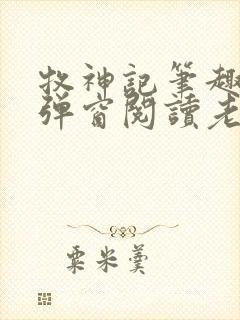 牧神記筆趣
弹窗閱讀老
粟米羹